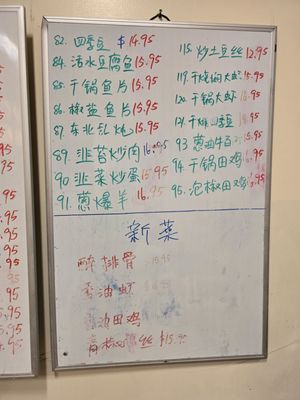 82. 四季豆 $14.95
84. 沸水豆腐鱼 15.95
85. 干锅鱼片 15.95
86. 椒盐鱼片 15.95
87. 东北乱炖 15.95
89. 韭苔炒肉 16.95
90. 韭菜炒蛋 15.95
91. 葱爆羊 16.95
115. 炒土豆丝 12.95
119. 干烧大虾 15.95
120. 干锅大虾
121. 干排豆
93 葱油牛百 15.95
94. 干锅田鸡 16.95
95. 泡椒田鸡 16.95
新菜
醉排骨 15.95
油虾
油田鸡
青椒 丝 $15.95
95
95
95
95
95
95
95
95